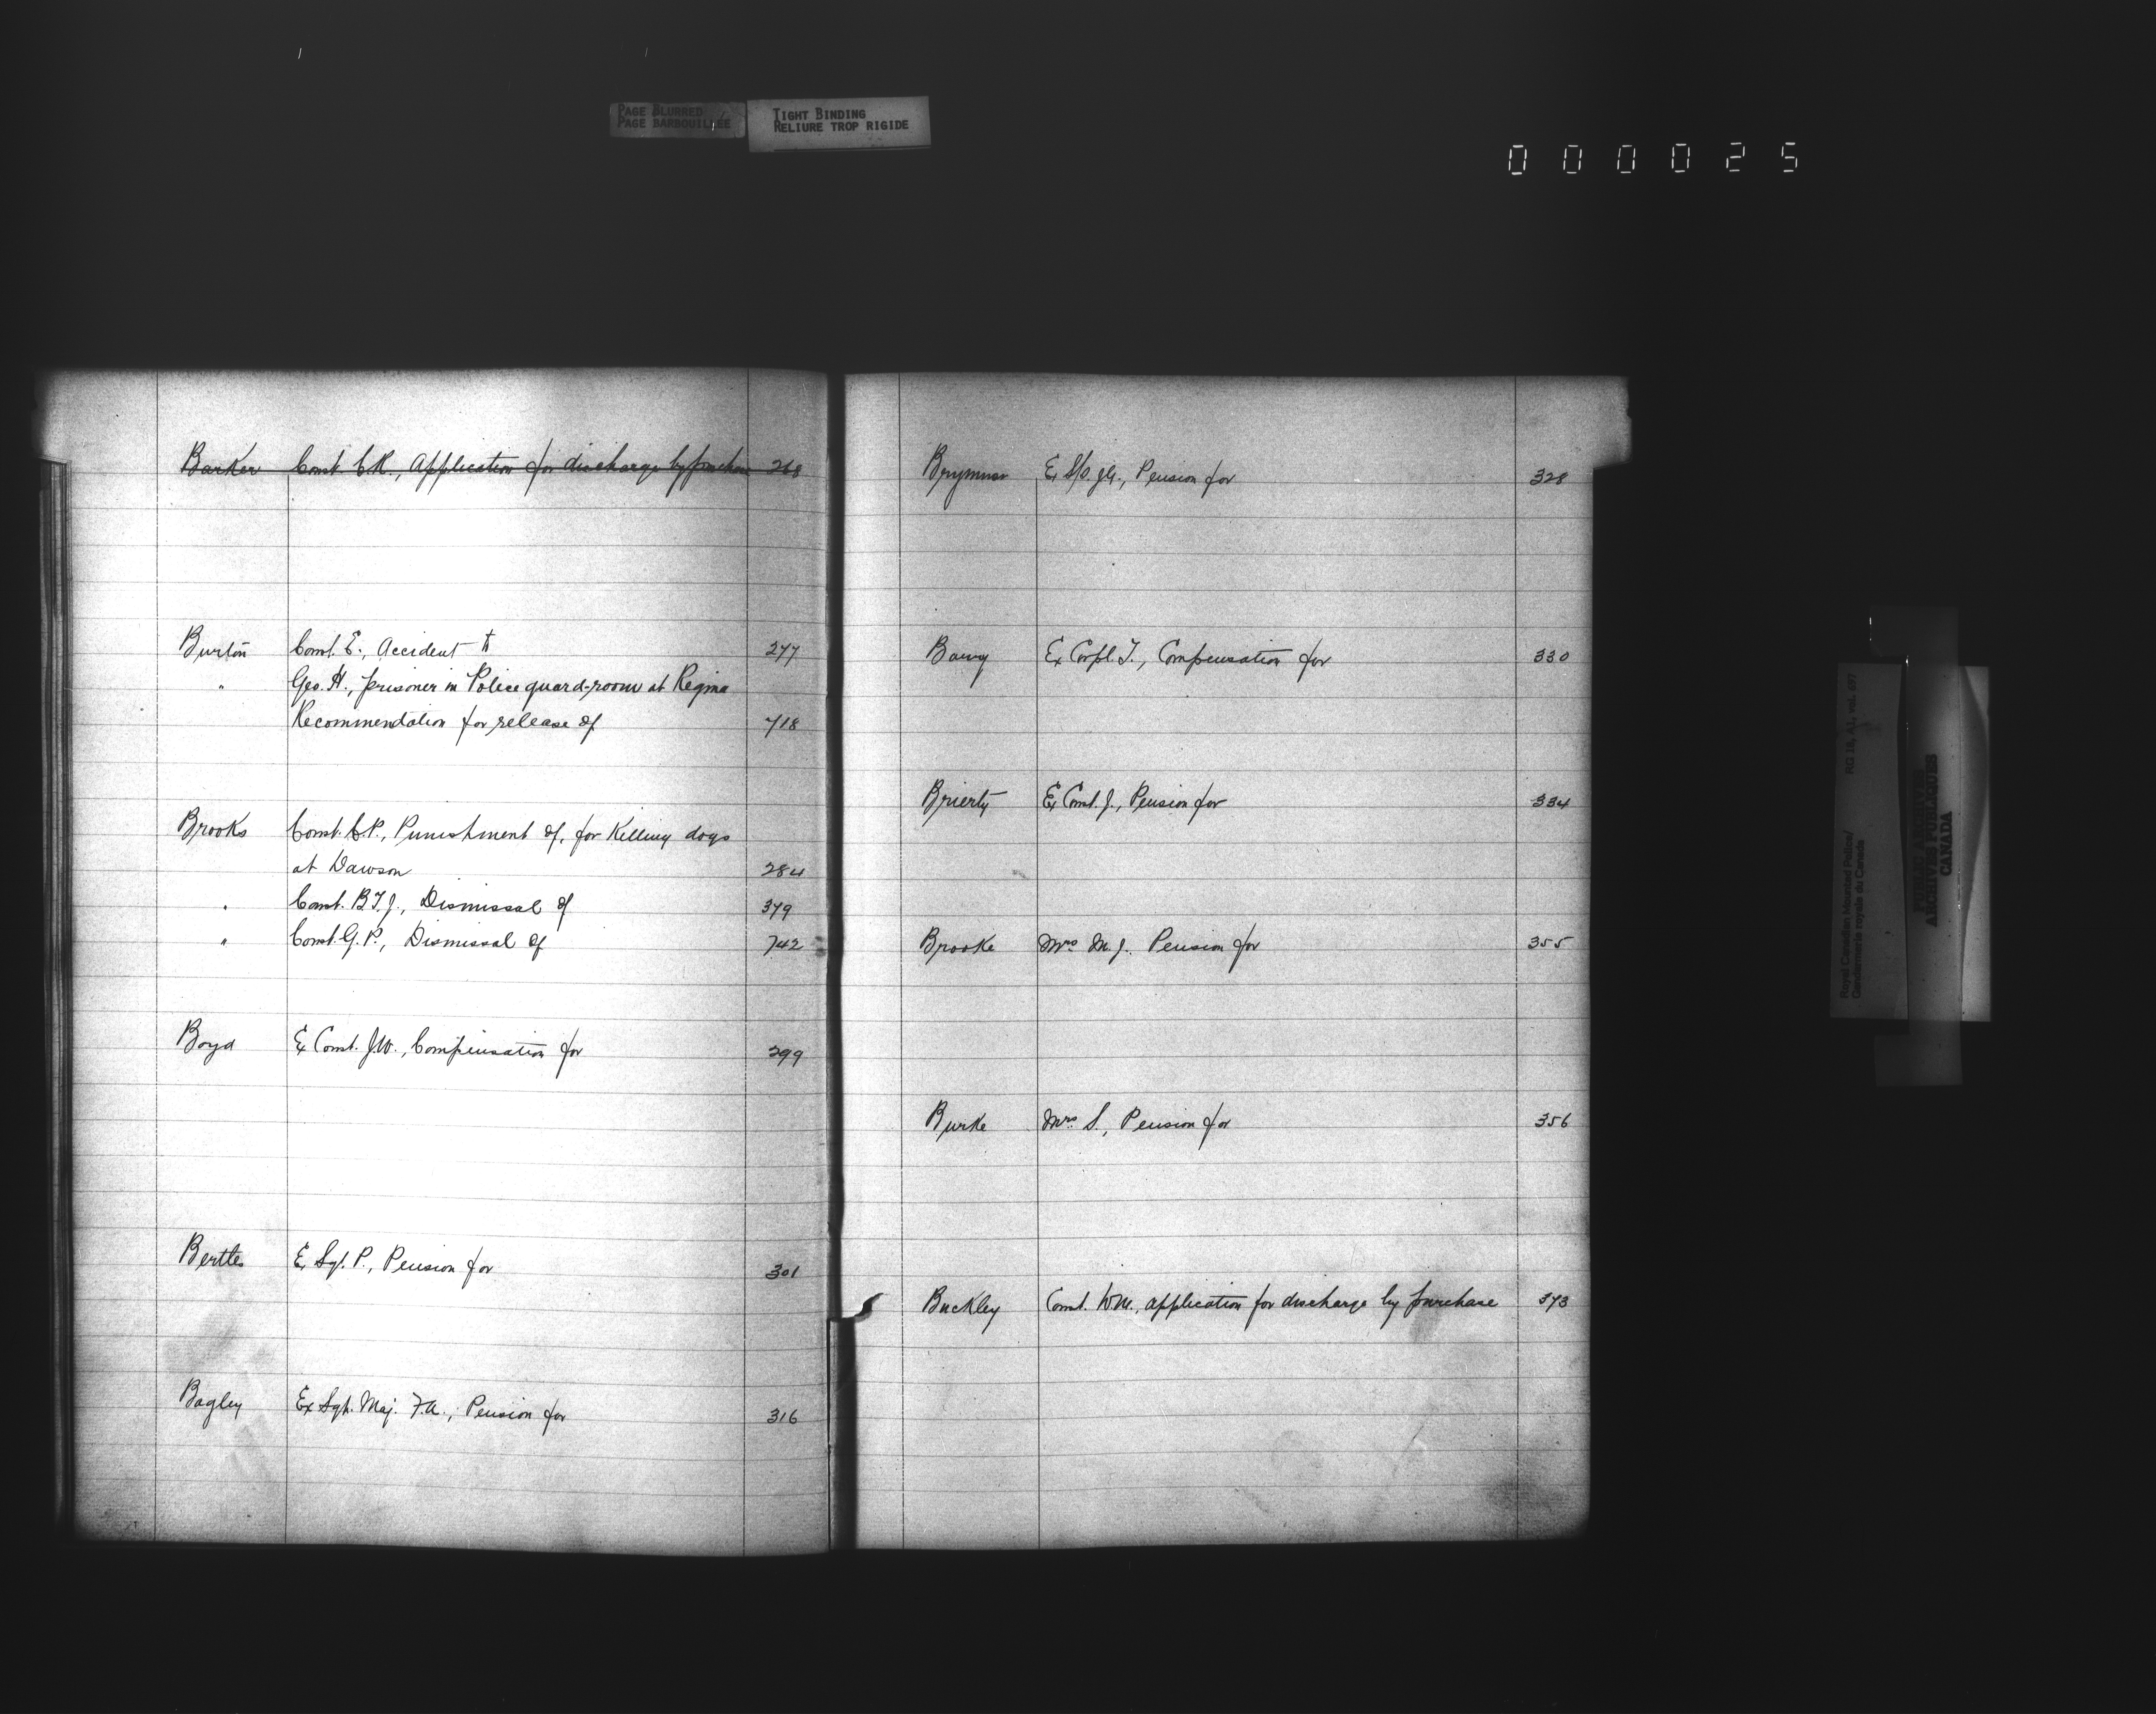 PAGE BLURRED
PAGE BARBOUILLÉE
TIGHT BINDING
RELIURE TROP RIGIDE
000025
Barker Const. C.R., Application for discharge by purchase 268
Burton Const. E., Accident to 277
" Geo. H., prisoner in Police guard-room at Regina
Recommendation for release of 718
Brooks Const. C.P., Punishment of, for Killing dogs
at Dawson 284
" Const. B.T.J., Dismissal of 379
" Const. G.P., Dismissal of 742
Boyd Ex Const. J.W., Compensation for 299
Bertles Ex Sgt. P., Pension for 301
Bagley Ex Sgt. Maj. F.A., Pension for 316
Brymner Ex S/Sgt., Pension for 328
Ex Corpl. T., Compensation for 330
Brierty Ex Const. J., Pension for 334
Brooke Mrs M.J. Pension for 355
Burke Mrs S., Pension for 356
Buckley Const. Wm., application for discharge by purchase 373
Royal Canadian Mounted Police/
Gendarmerie royale du Canada
RG 18, A1, vol. 697
PUBLIC ARCHIVES
ARCHIVES PUBLIQUES
CANADA